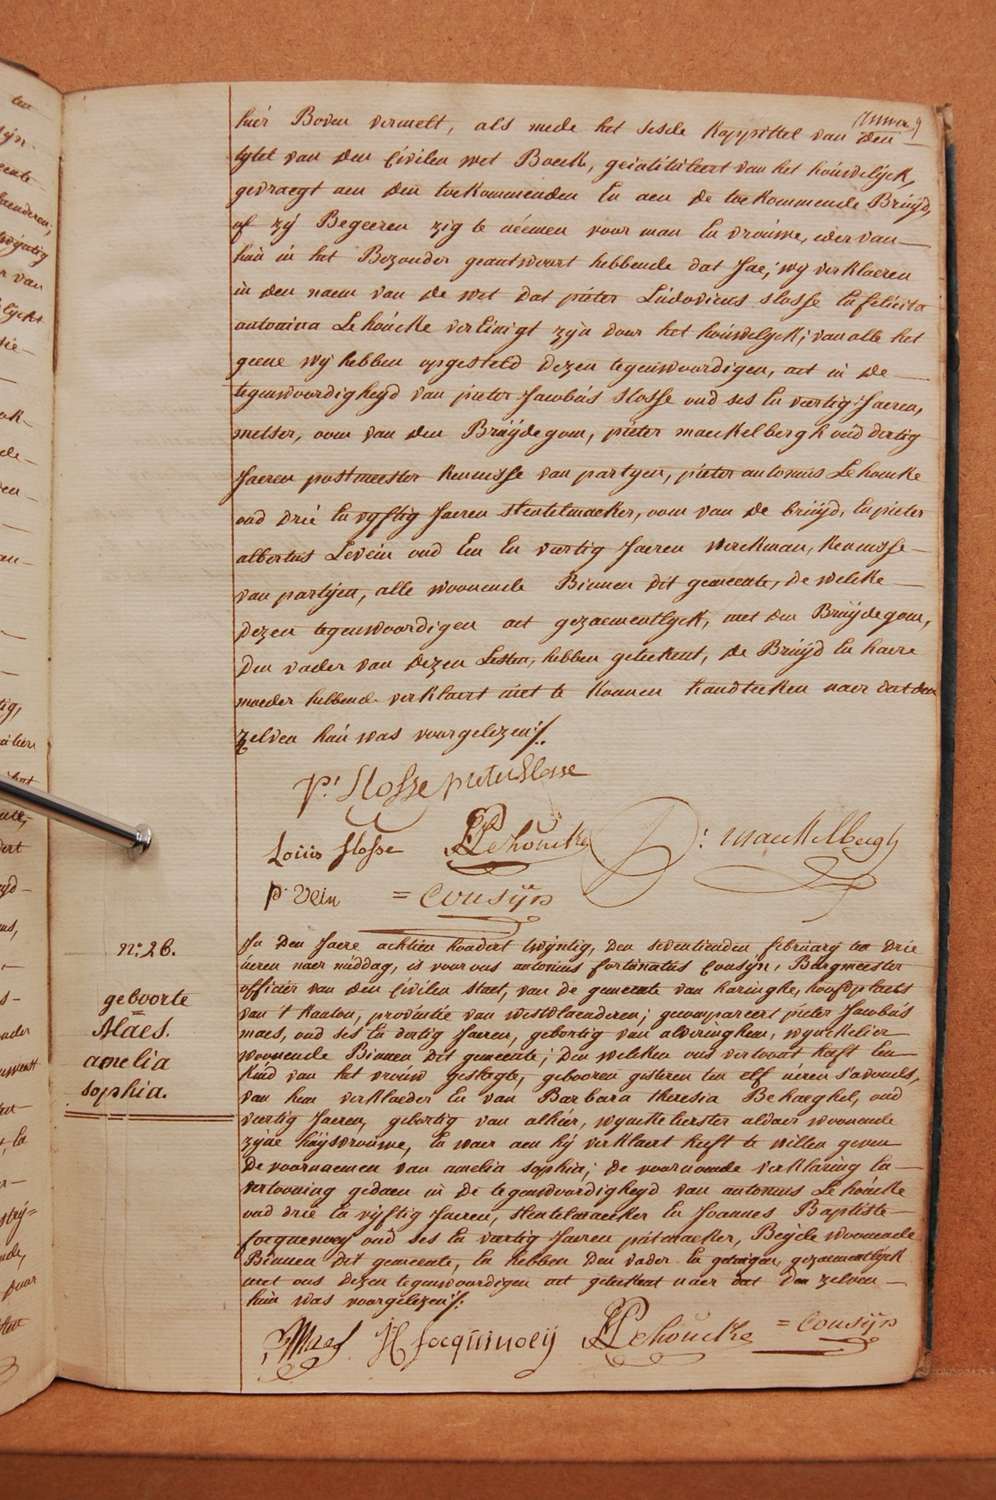 hier Boven vermelt, als mede het sesde Kappittel van den
tytel van den Civilen wet Boeck, geintituleert van het houwelyck,
gevraegt aen den toekommenden En aen de toekommende Bruÿd,
of zÿ Begeeren zig te néemen voor man En vrouwe, ider van
hun in het Bezonder geantwoort hebbende dat Jae; wÿ verklaeren
in den naem van de wet dat pieter Ludovicus slosse En felicita
antonina Lehoucke verEinigt zÿn door het houwelyck; van alle het
geene wÿ hebben opgesteld dezen tegenwoordigen, act in de
tegenwoordigheyd van pieter Jacobus Slosse oud ses En veertig Jaeren,
metser, oom van den Bruÿdegom, pieter maeckelbergh oud dertig
Jaeren postmeester kennisse van partyen, pieter antonius Lehoucke
oud drie En vyftig Jaeren Steutelmaeker, oom van de bruÿd, En pieter
albertus Levein oud Een En veertig Jaeren werckman, kennisse
van partÿen, alle woonende Binnen dit gemeente, de welcke
dezen tegenwoordigen act gezaementlyck, met den Bruÿdegom,
den vader van dezen Lesten, hebben geteekent, de Bruÿd En haere
moeder hebbende verklaert niet te konnen handteeken naer dat den
zelven hun was voorgelezen·/.
Pr Slosse pieter Slosse
Louis Slosse PLehoucke P: Maeckelbergh
p. vein = Cousÿn
n:° 26.
geboorte
=
Maes.
amelia
sophia.
In den Jaere achtien hondert twyntig, den seventienden februarÿ ten drie
üeren naer middag, is voor ons antonius fortunatus Cousÿn, Borgmeester
officier van den Civilen staet, van de gemeente van haringhe, hoofdplaets
van 't kanton, provintie van westvlaenderen; gecompareert pieter Jacobus
maes, oud ses En dertig Jaeren, gebortig van alveringhem, wynckelier
woonende Binnen dit gemeente; den welcken ons vertoont heeft Een
kind van het vrouw geslagte, gebooren gisteren ten elf üeren s'avonds,
van hem verklaeder En van Barbara theresia Dekaeghel, oud
veertig Jaeren, gebortig van alhier, wynckelierster aldaer woonende
zÿne huÿsvrouwe, En waer aen hÿ verklaert heeft te willen geven
de voornaemen van amelia sophia; de voornoemde verklaring En
vertooning gedaen in de tegenwoordigheyd van antonius Lehoucke
oud drie En vÿftig Jaeren, steutelmaecker En Joannes Baptiste
focquenoey oud ses En veertig Jaeren, Beÿde woonende
Binnen dit gemeente, En hebben den vader En getuigen, gezaementlyck
met ons dezen tegenwoordigen act geteekent naer dat den zelven
hun was voorgelezen·/.
PJMaes JB focquinoeÿ PLehoucke = Cousÿn